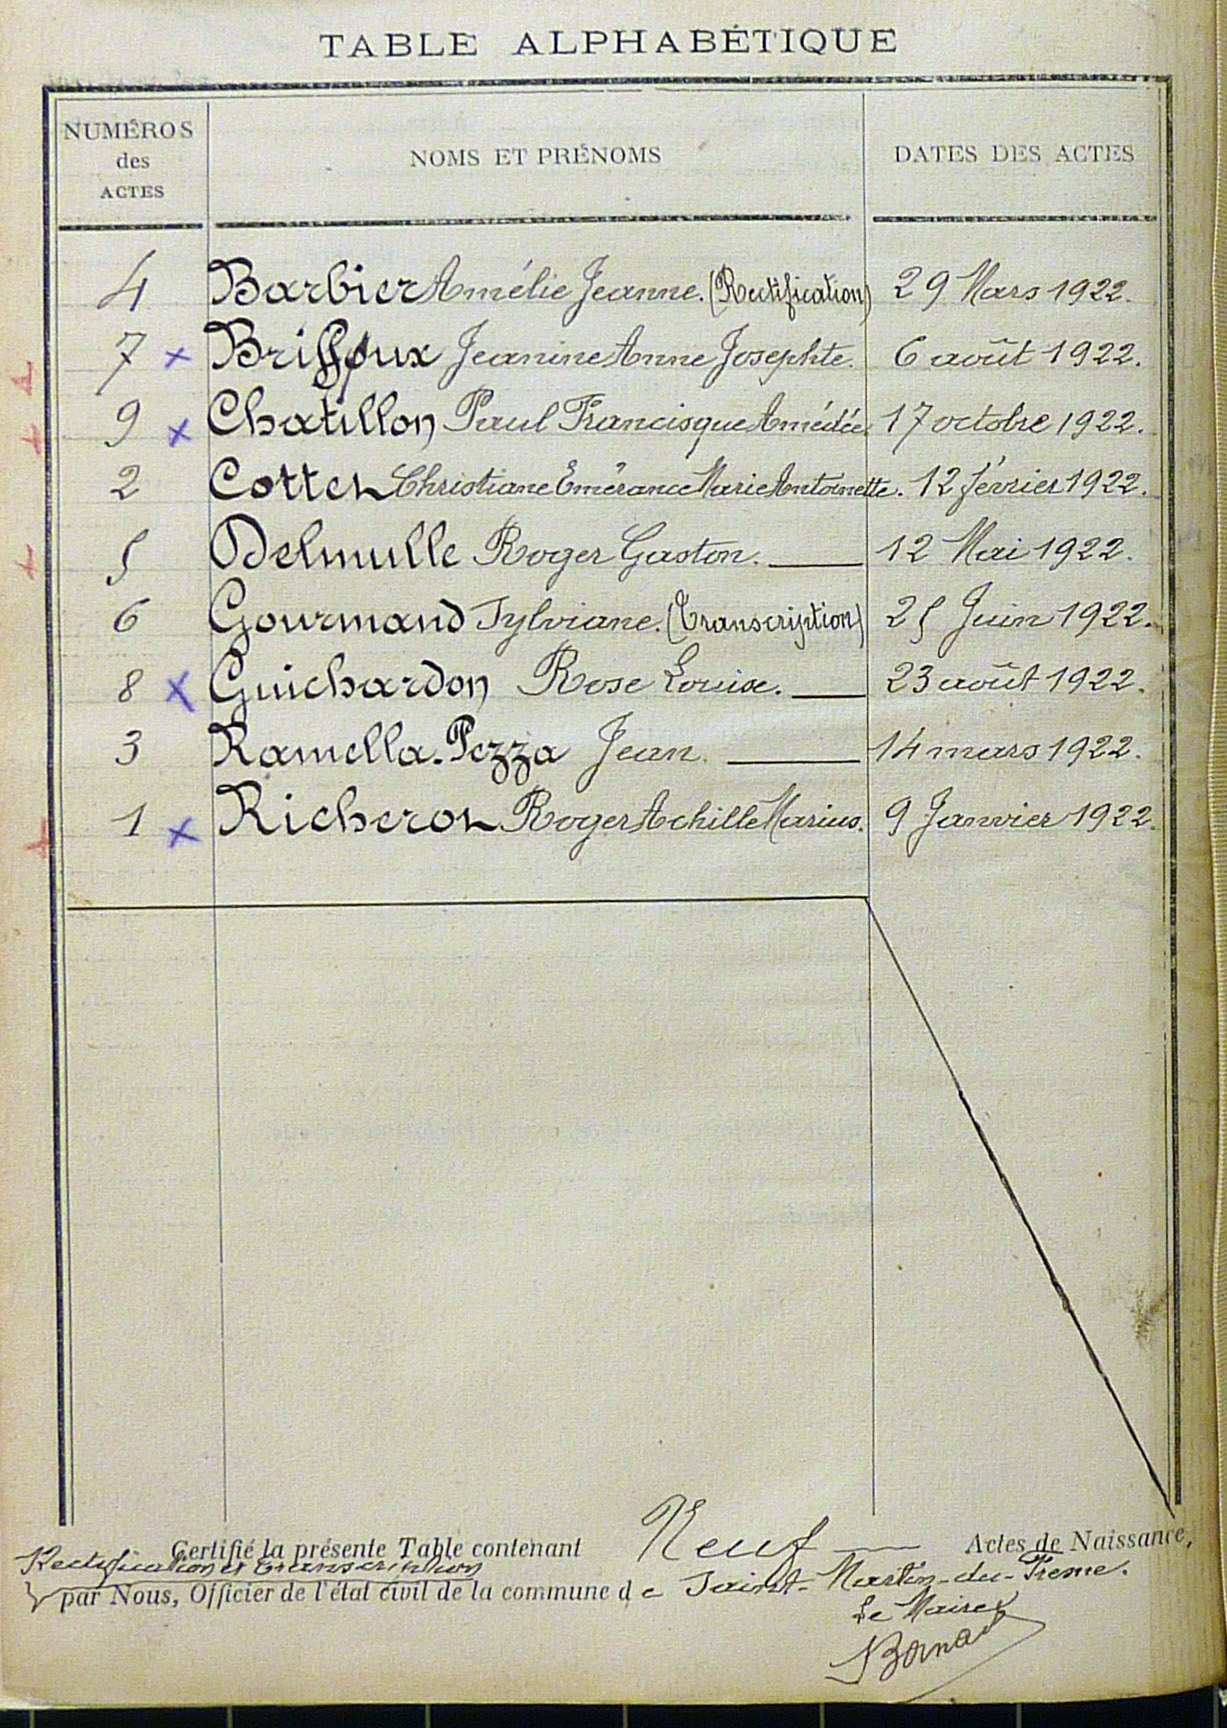 TABLE ALPHABÉTIQUE
NUMÉROS des ACTES NOMS ET PRÉNOMS DATES DES ACTES
4 Barbier Amélie Jeanne. (Rectification) 29 Mars 1922.
7 x Briffoux Jeanine Anne Josephte. 6 août 1922.
9 x Chatillon Paul Francisque Amédée 17 octobre 1922.
2 Cottet Christiane Emérance Marie Antoinette. 12 février 1922.
5 Delmulle Roger Gaston. 12 Mai 1922.
6 Gourmand Sylviane. (Transcription) 25 Juin 1922.
8 x Guichardon Rose Louise. 23 août 1922.
3 Ramella-Pezza Jean. 14 mars 1922.
1 x Richerot Roger Achille Marius. 9 Janvier 1922.
Certifié la présente Table contenant Neuf Actes de Naissance,
Rectification et Transcription
par Nous, Officier de l'état civil de la commune de Saint-Martin-du-Fresne.
Le Maire